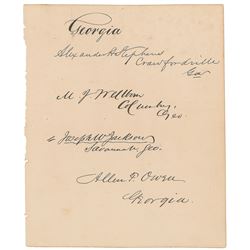 Georgia
Alexander H Stephens
Crawfordville
Ga
M. J. Wellborn
Columbus,
Geo.
Joseph W. Jackson
Savannah, Geo.
Allen F. Owen
Georgia.